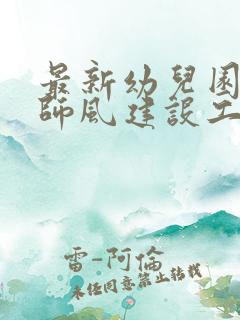 最新幼兒園
師風建設工
雷-阿倫
未经同意禁止转载